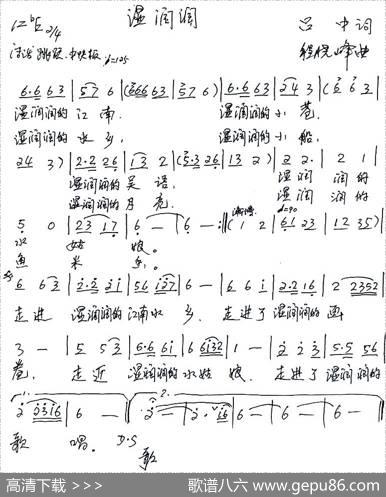 湿润润
1=♭E 2/4 吕中词
♩=125 程俊峰曲
6·6 6 3 | 5 7 6 | (6·6 6 3 | 5 7 6) | 6·6 6 3 | 2 4 3 | (6 6 3 |
湿润润的江南, 湿润润的小巷,
湿润润的水乡, 湿润润的小船,
2 4 3) | 2·2 2 6 | 1 3 2 | (5·3 2 6 | 1 3 2) | 2 2· | 2 1 |
湿润润的吴语, 湿润润的
湿润润的月亮, 湿润润的
5 0 | 2 3 1 7 | 6 — | 6 — :|| (1 2 | 6 1 2 3 | 1 2 3 5)
水姑娘。
鱼米乡。
6 6 3 | 2·3 2 1 | 5 6 1 3 7 | 6 — | 6 6 1 | 2·2 1 6 | 2 2 3 5 2 |
走进湿润润的江南水乡, 走进了湿润润的画
3 — | 5 5 3 | 6·6 6 1 | 6 6 1 3 2 | 1 — | 2 2 3 | 5·5 5 6 |
卷, 走近湿润润的水姑娘, 走进了湿润润的
1. 2.
2 0 3 1 6 | 6 — | 2 — | 2 · 1 6 | 6 — | 6 — | 6 — |
歌唱。 D.S 歌
高清下载 >>> 歌谱八六 www.gepu86.com